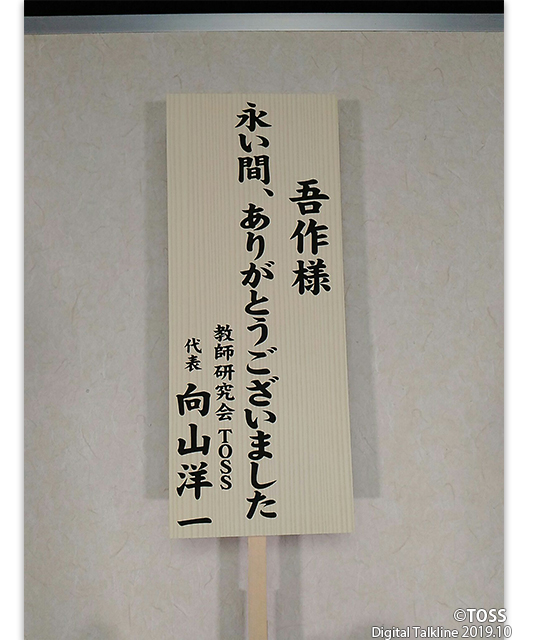 吾作様
永い間、ありがとうございました
教師研究会 TOSS
代表 向山洋一
©TOSS
Digital Talkline 2019.10